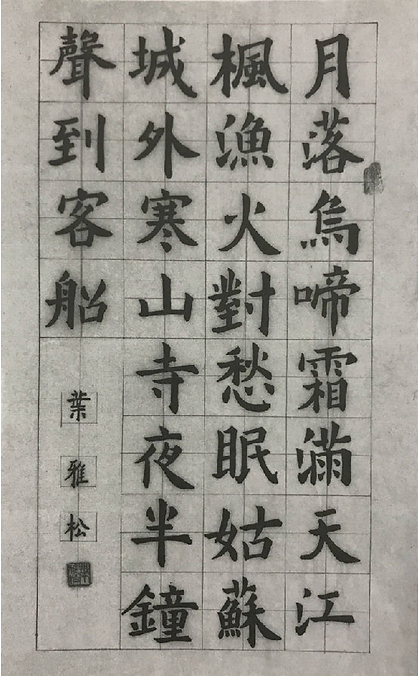 月落烏啼霜滿天江
楓漁火對愁眠姑蘇
城外寒山寺夜半鐘
聲到客船
葉雅松